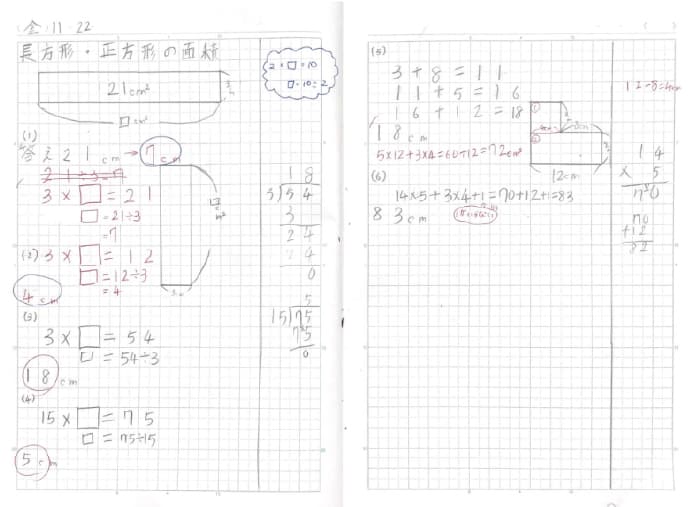 金 11 22
長方形・正方形の面積
21cm²
□cm²
2×□=10
□=10÷2
(1)
答え 21cm → 7cm
21÷3=7
3×□=21
□=21÷3
=7
(2) 3×□=12
□=12÷3
=4
4cm
(3)
3×□=54
□=54÷3
18cm
(4)
15×□=75
□=75÷15
5cm
18
3)54
3
24
24
0
5
15)75
75
0
(5)
3+8=11
11+5=16
16+12=18
18cm
5×12+3×4=60+12=72cm²
12-8=4cm
①
②
12cm
(6)
14×5+3×4+1=70+12+1=83
83cm
14
× 5
70
70
+12
82